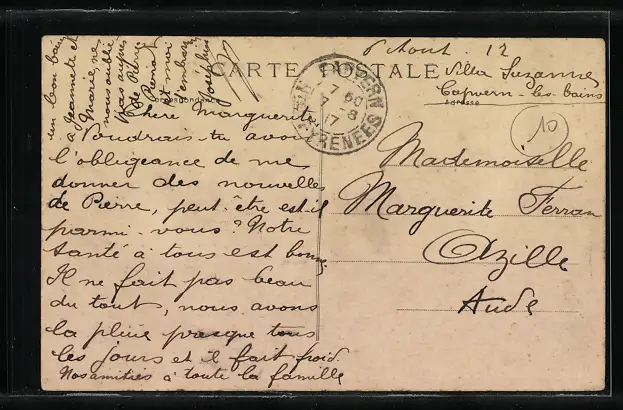 6 Aout. 12
Villa Suzanne
Capvern-les-bains
CARTE POSTALE
Correspondance
Adresse
CAPVERN
7 60
7 - 8
17
PYRÉNÉES
10
Chere Marguerite
Voudrais-tu avoir
l'obligeance de me
donner des nouvelles
de Pierre, peut-être est-il
parmi-vous? Notre
santé à tous est bonne,
Il ne fait pas beau
du tout, nous avons
la pluie presque tous
les jours et il fait froid
Nos amitiés à toute la famille
un bon baiser
à Jeannette et
Marie, ne
nous oublie
pas auprès
de Pierre
René
et moi
t'embrassons
Josephine
Mademoiselle
Marguerite Ferran
Azille
Aude